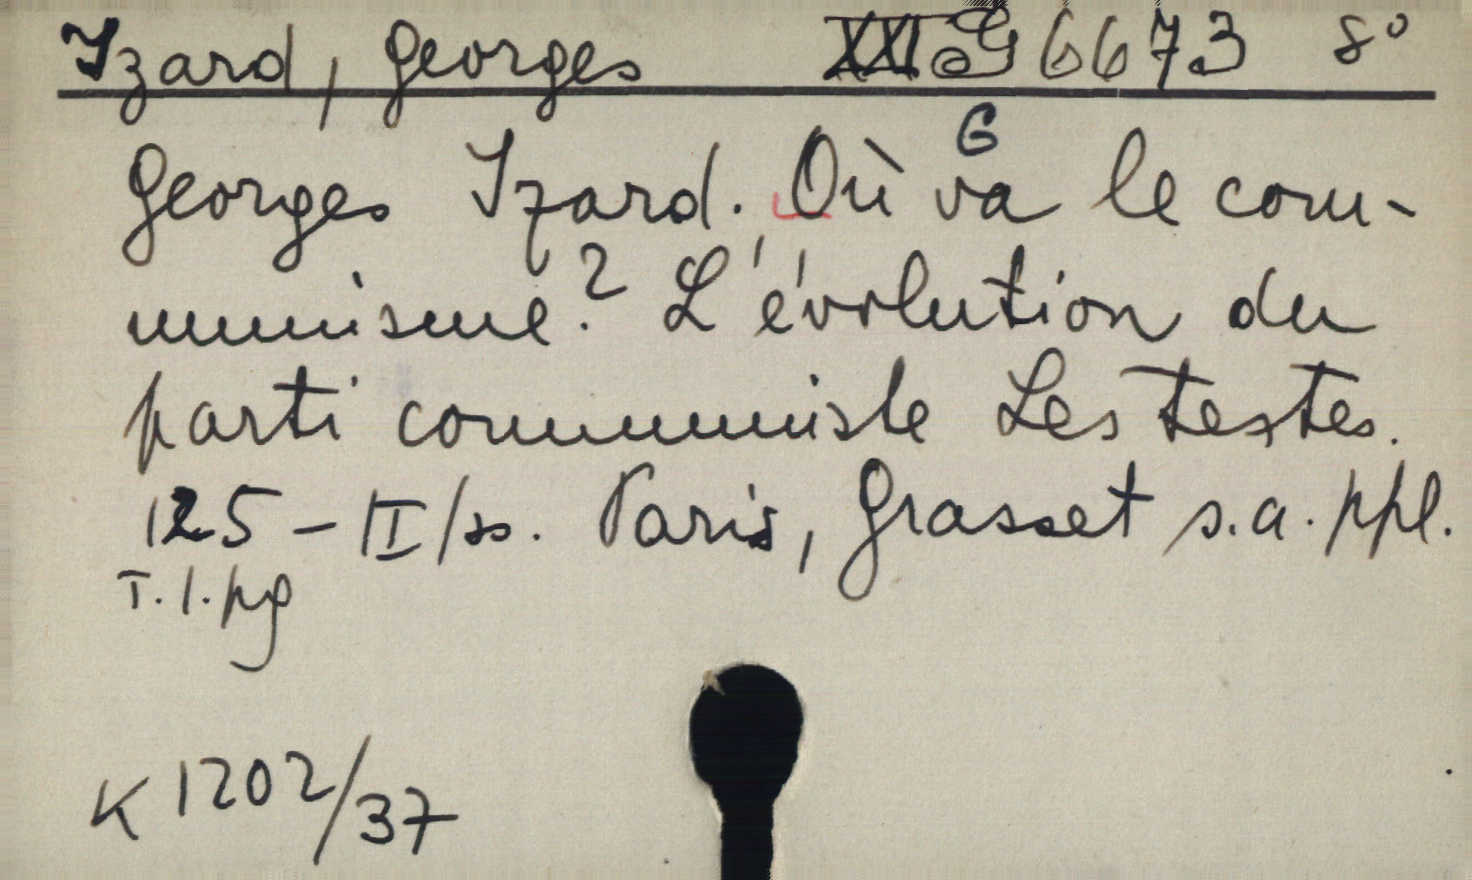 Izard, Georges XXI G 6673 8°
G
Georges Izard. Où va le com-
munisme? L'évolution du
parti communiste Les textes.
125 - II/ss. Paris, Grasset s.a. ppl.
T. l. pg
K 1202/37